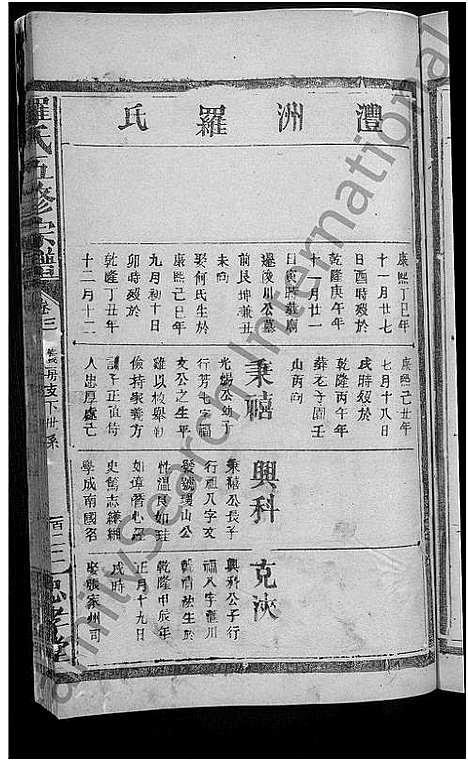 澧洲羅氏
康熙丁巳年
十一月廿七
日酉時歿於
乾隆庚午年
十一月廿一
日寅時葬廟
邊浚川公墓
前艮坤兼丑
未向
娶何氏生於
康熙己巳年
九月初十日
卯時歿於
乾隆丁丑年
十二月十二
康熙己丑年
七月十八日
戌時歿於
乾隆丙午年
葬老子園壬
山丙向
秉禧
光錫公幼子
行芳七字福
文公之生平
雖以枚舉
儉持家義方
訓子正直待
人忠厚處己
興科
秉禧公長子
行祖八字文
發號璞山公
性溫良如珪
如璋潛心經
史篤志縹緗
學成南國名
克浹
興科公子行
福八字龍川
號
乾隆甲辰年
正月十九日
戌時
娶張家州司
羅氏五修宗譜
卷三
房攴下世系
百二
忠孝堂
FamilySearch International